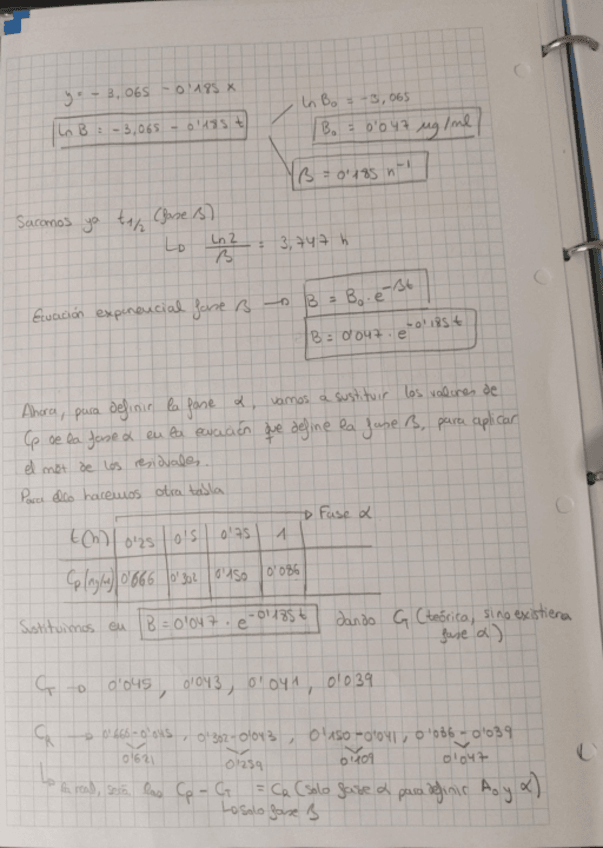 y = - 3,065 - 0'185 x
ln B = -3,065 - 0'185 t
ln B₀ = -3,065
B₀ = 0'047 µg/ml
β = 0'185 h⁻¹
Sacamos ya t₁/₂ (fase β)
↳ ln2/β = 3,747 h
Ecuación exponencial fase β → B = B₀ · e^-βt
B = 0'047 · e^-0'185t
Ahora, para definir la fase α, vamos a sustituir los valores de
Cp de la fase α en la ecuación que define la fase β, para aplicar
el met de los residuales.
Para ello hacemos otra tabla
→ Fase α
t(h) 0'25 0'5 0'75 1
Cp 0'666 0'302 0'150 0'086
Sustituimos en B = 0'047 · e^-0'185t dando CT (teórica, si no existiera
fase α)
CT → 0'045, 0'043, 0'041, 0'039
CR → 0'666-0'045, 0'302-0'043, 0'150-0'041, 0'086-0'039
0'621 0'259 0'109 0'047
↳ Cp - CT = CR (solo fase α para definir A₀ y α)
↳ solo fase β